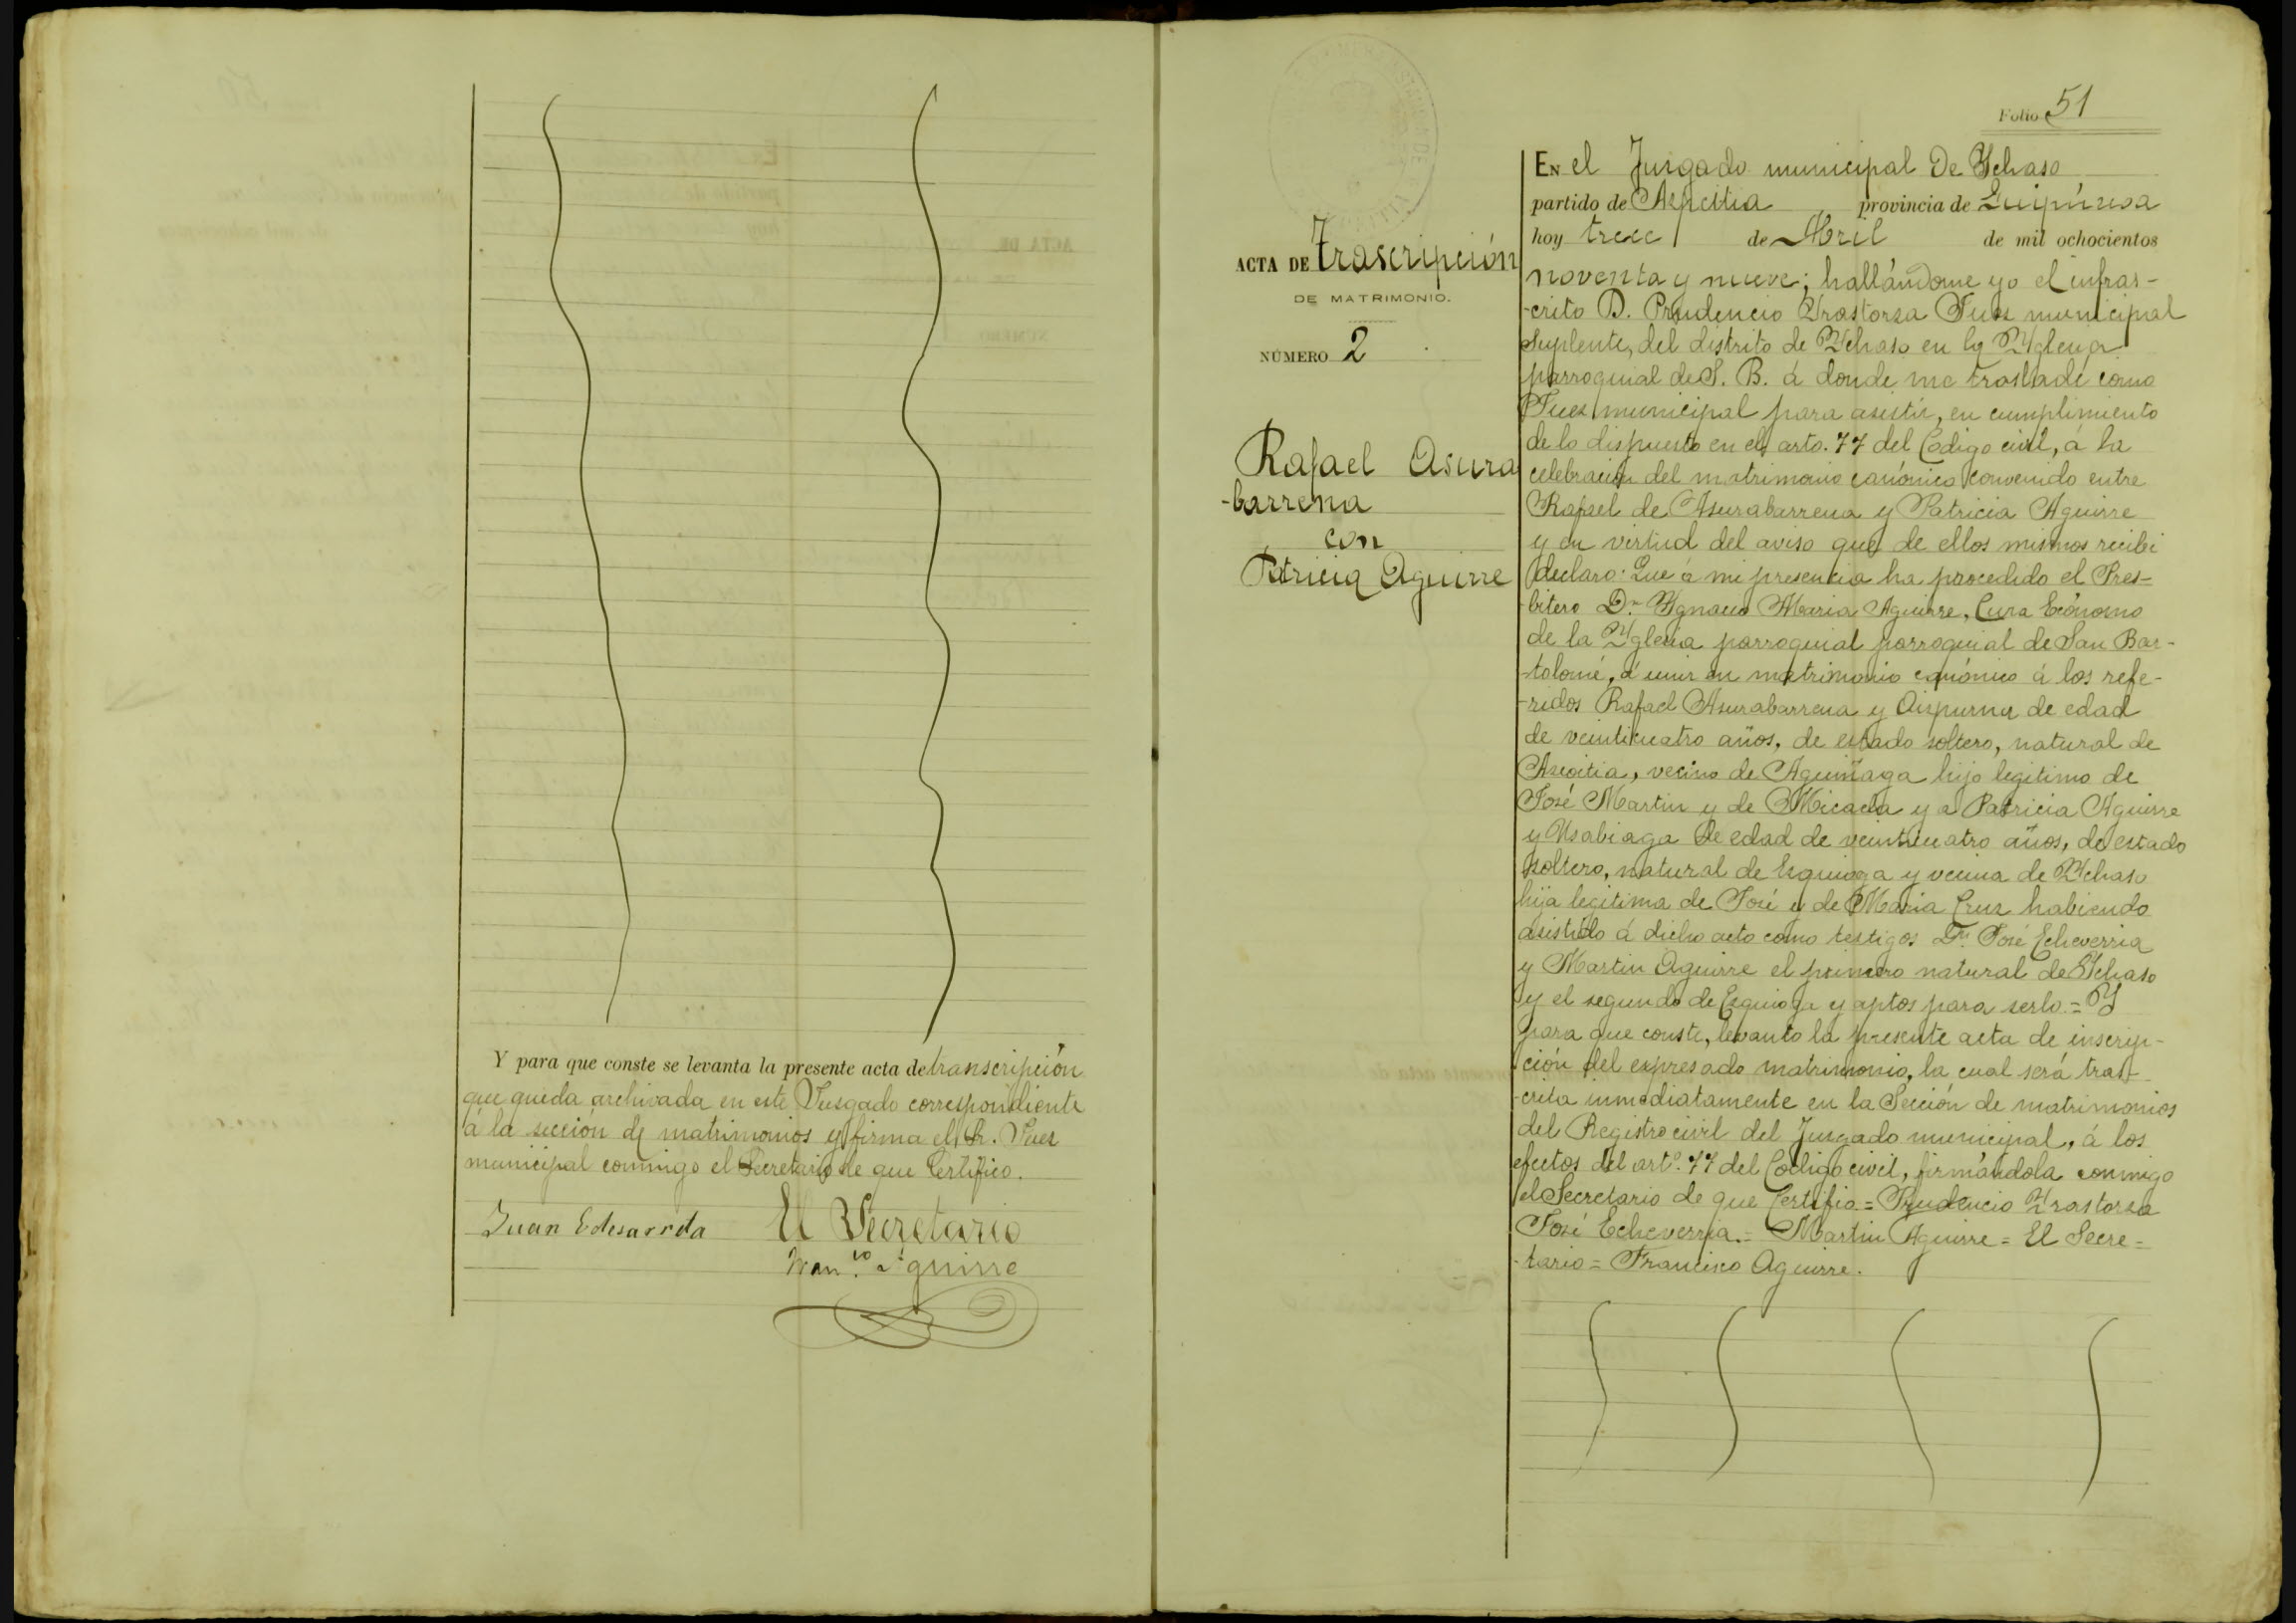 Y para que conste se levanta la presente acta de transcripción
que queda archivada en este Jusgado correspondiente
á la sección de matrimonios y firma el Sr. Juez
municipal conmigo el Secretario de que Certifico.
Juan
El Secretario
Fran.co Aguirre
Folio 51
ACTA DE Trascripción
DE MATRIMONIO.
NÚMERO 2
Rafael Asura
-barrena
con
Patricia Aguirre
EN el Juzgado municipal De Ychaso
partido de Azpeitia provincia de Guipúzcoa
hoy trece de Abril de mil ochocientos
noventa y nueve; hallándome yo el infras-
-crito D. Prudencio Yrastorza Juez municipal
Suplente, del distrito de Ychaso en la Yglecia
parroquial de S. B. á donde me trasladé como
Juez municipal para asistir, en cumplimiento
de lo dispuesto en el arto. 77 del Codigo civil, á la
celebración del matrimonio canónico convenido entre
Rafael de Asurabarrena y Patricia Aguirre
y en virtud del aviso que de ellos mismos recibi
declaro: Que á mi presencia ha procedido el Pres-
bitero Dn. Ygnacio Maria Aguirre, Cura Ecónomo
de la Yglecia parroquial parroquial de San Bar-
-tolomé, á unir en matrimonio canónico á los refe-
-ridos Rafael Asurabarrena y Aizpurua de edad
de veinticuatro años, de estado soltero, natural de
Azcoitia, vecino de Aguinaga hijo legitimo de
José Martin y de Micaela y a Patricia Aguirre
y Usabiaga de edad de veinticuatro años, de estado
soltero, natural de Ezquioga y vecina de Ychaso
hija legitima de José y de Maria Cruz habiendo
asistido á dicho acto como testigos Dn. José Echeverria
y Martin Aguirre el primero natural de Ychaso
y el segundo de Ezquioga y aptos para serlo = Y
para que conste, levanto la presente acta de inscrip-
ción del expresado matrimonio, la cual será tras-
-crita inmediatamente en la Sección de matrimonios
del Registro civil del Juzgado municipal, á los
efectos del arto. 77 del Codigo civil, firmándola conmigo
el Secretario de que Certifio = Prudencio Yrastorza
José Echeverria. = Martin Aguirre = El Secre=
-tario = Francisco Aguirre.